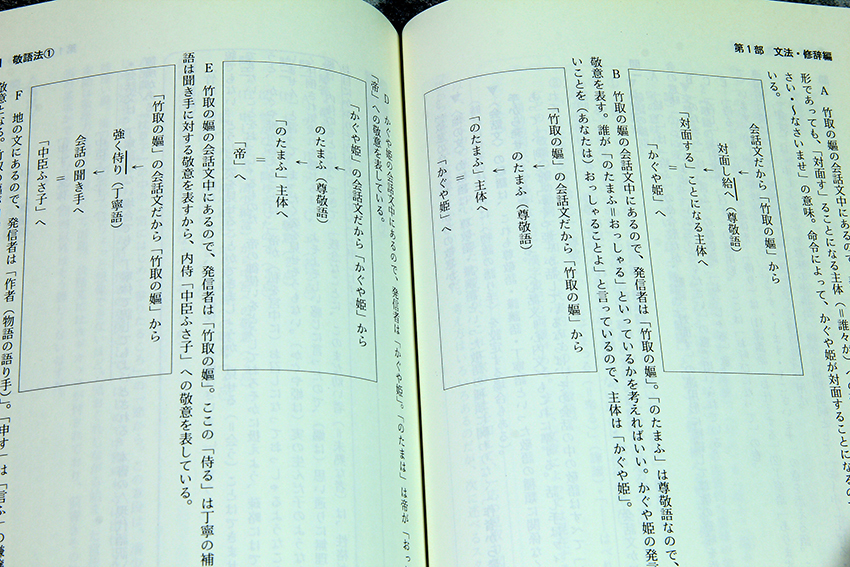 第1部　文法・修辞編
A　竹取の嫗の会話文中にあるので、
形であっても、「対面す」ることになる主体（＝誰々か）への
さい・〜なさいませ」の意味。命令によって、かぐや姫が対面することになるので
いる。
会話文だから「竹取の嫗」から
対面し給へ（尊敬語）
「対面する」ことになる主体へ
＝
「かぐや姫」へ
B　竹取の嫗の会話文中にあるので、発信者は「竹取の嫗」。「のたまふ」は尊敬語なので、
敬意を表す。誰が「のたまふ＝おっしゃる」といっているかを考えればいい。かぐや姫の発言
いことを（あなたは）おっしゃることよ」と言っているので、主体は「かぐや姫」。
「竹取の嫗」の会話文だから「竹取の嫗」から
のたまふ（尊敬語）
「のたまふ」主体へ
＝
「かぐや姫」へ
敬語法①
D　かぐや姫の会話文中にあるので、発信者は「かぐや姫」。「のたまは」は帝が「おっ
「帝」への敬意を表している。
「かぐや姫」の会話文だから「かぐや姫」から
のたまふ（尊敬語）
「のたまふ」主体へ
＝
「帝」へ
E　竹取の嫗の会話文中にあるので、発信者は「竹取の嫗」。ここの「侍る」は丁寧の補
語は聞き手に対する敬意を表すから、内侍「中臣ふさ子」への敬意を表している。
「竹取の嫗」の会話文だから「竹取の嫗」から
強く侍り（丁寧語）
会話の聞き手へ
＝
「中臣ふさ子」へ
F　地の文にあるので、発信者は「作者（物語の語り手）」。「申す」は「言ふ」の謙譲
敬意となる。竹取の嫗が